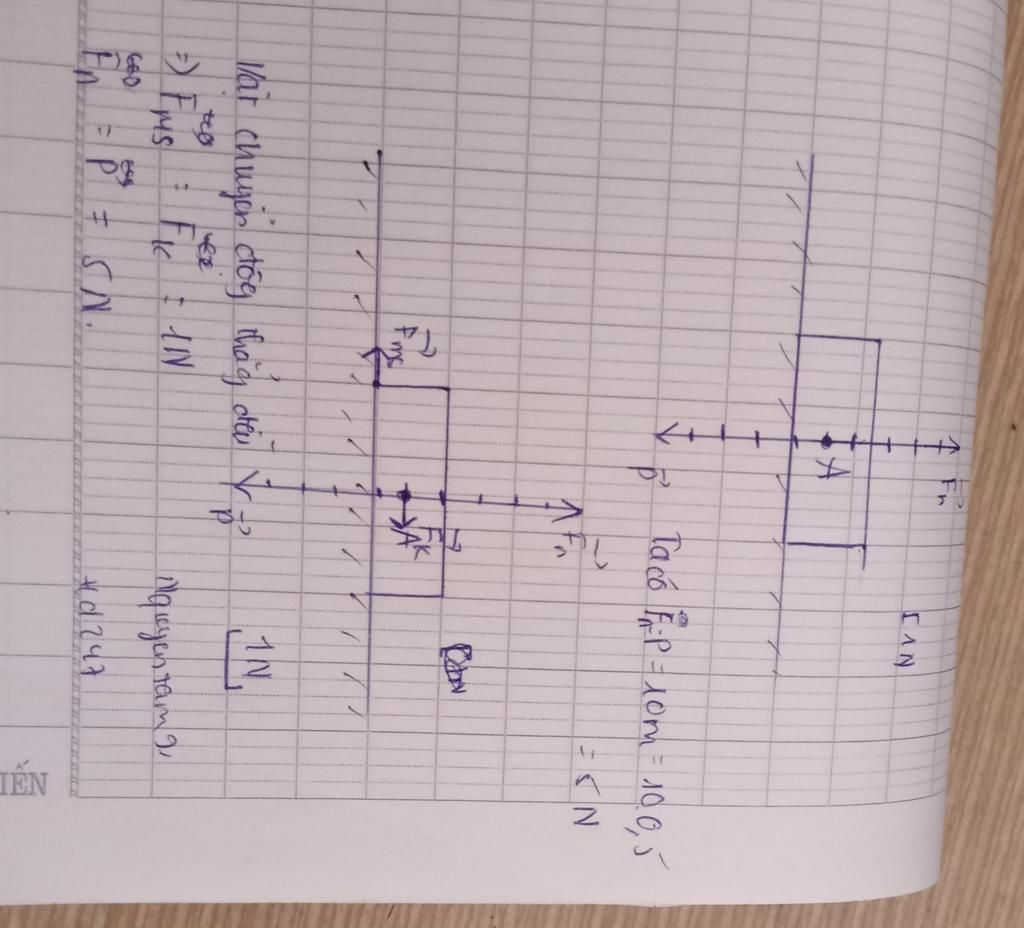 Fn
1N
A
P
Ta có Fn=P=10m=10.0,5
= 5 N
Fn
Fk
A
Fms
P
1N
Vật chuyển động thẳng đều
=> Fms = Fk = 1N
Fn = P = 5N.
nguyentam21
#d247
IẾN